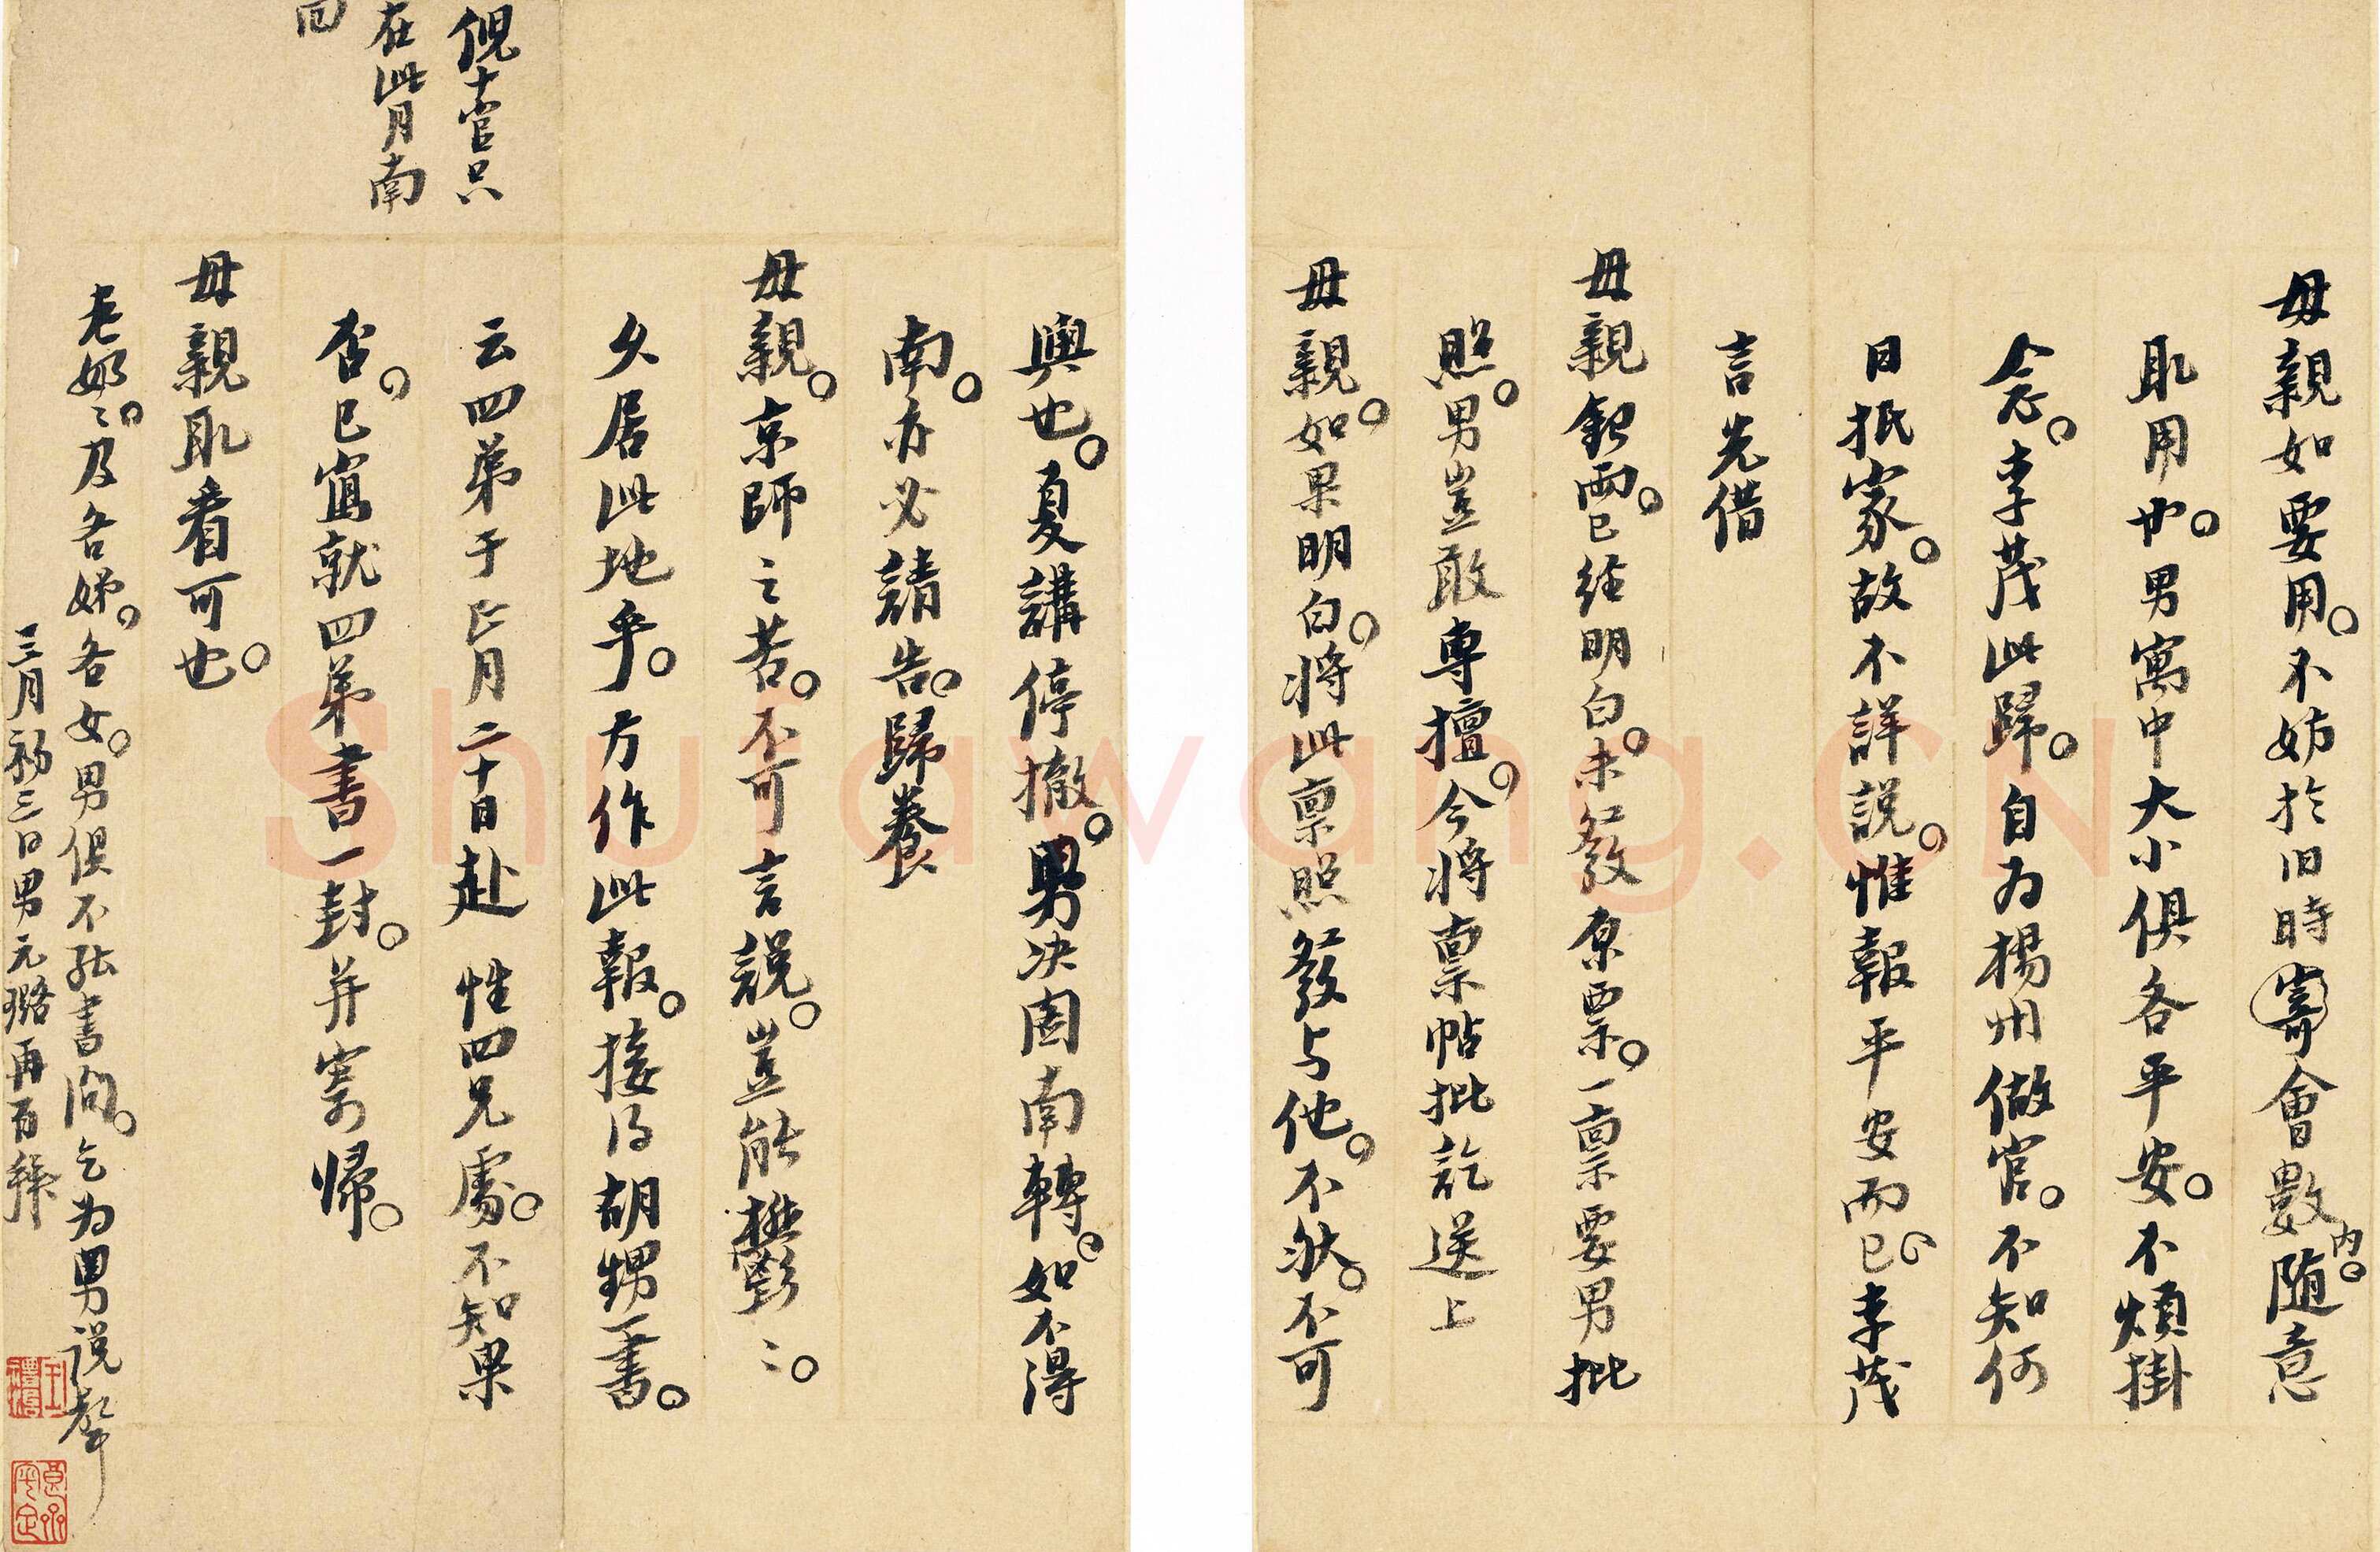 母親如要用。不妨於旧時寄會數内。随意
取用也。男寓中大小俱各平安。不煩掛
念。李茂此歸。自为楊州做官。不知何
日抵家。故不詳説。惟報平安而已。李茂
言先借
母親銀両。已经明白。未發原票。一禀要男批
照。男豈敢専擅。今将禀帖批訖送上
母親。如果明白。将此禀照發与他。不狀。不可
與也。夏講停撤。男决圖南轉。如不得
南。亦必請告。歸養
母親。京師之苦。不可言説。豈能欝欝
久居此地乎。方作此報。接得胡甥一書。
云四弟于正月二十日赴 性四兄處。不知果
否。已寫就四弟書一封。并寄歸。
母親取看可也。
老奶奶。及各娣。各女。男俱不能書問。乞为男说聲
三月初三日男元璐再百拜
倪十官只
在此月南
回
Shufawang.CN